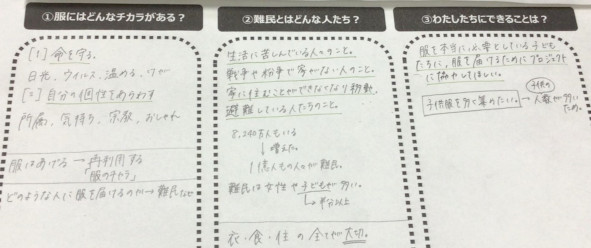 ①服にはどんなチカラがある？
[1] 命を守る。
日光、ウイルス、温める、ケガ
[2] 自分の個性をあらわす
所属、気持ち、宗教、おしゃれ
服はあげる→再利用する
「服のチカラ」
どのような人に服を届けるのか→難民など
②難民とはどんな人たち？
生活に苦しんでいる人々のこと。
戦争や紛争で家がない人のこと。
家に住むことができなくなり移動、
避難している人たちのこと。
8,240万人もいる
↓増えた。
1億人もの人々が難民。
難民は女性や子どもが多い。
↳半分以上
衣・食・住の全てが大切。
③わたしたちにできることは？
服を本当に必要としている子ども
たちに、服を届けるためにプロジェクト
に協力してほしい。
子供服を多く集めたい。→子供の人数が多い
ため。